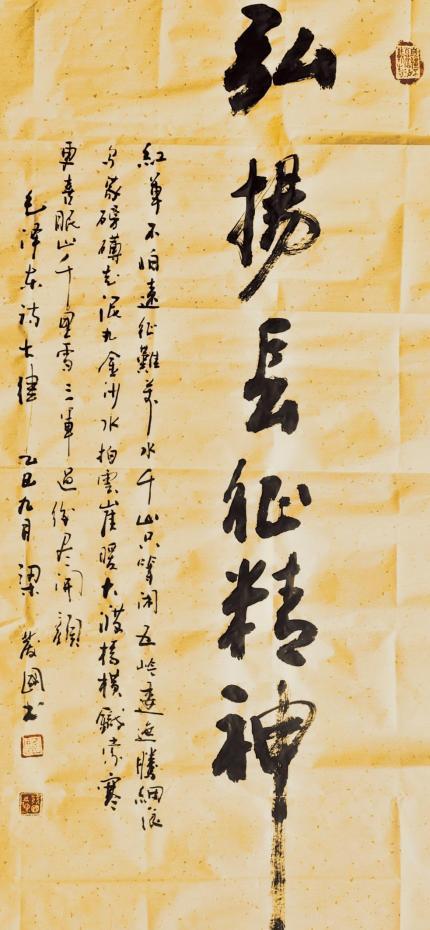 弘揚長征精神
紅軍不怕遠征難萬水千山只等閑五嶺逶迤騰細浪
烏蒙磅礴走泥丸金沙水拍雲崖暖大渡橋橫鐵索寒
更喜岷山千里雪三軍過後尽開顏
毛澤东詩七律 乙丑九月 梁國书